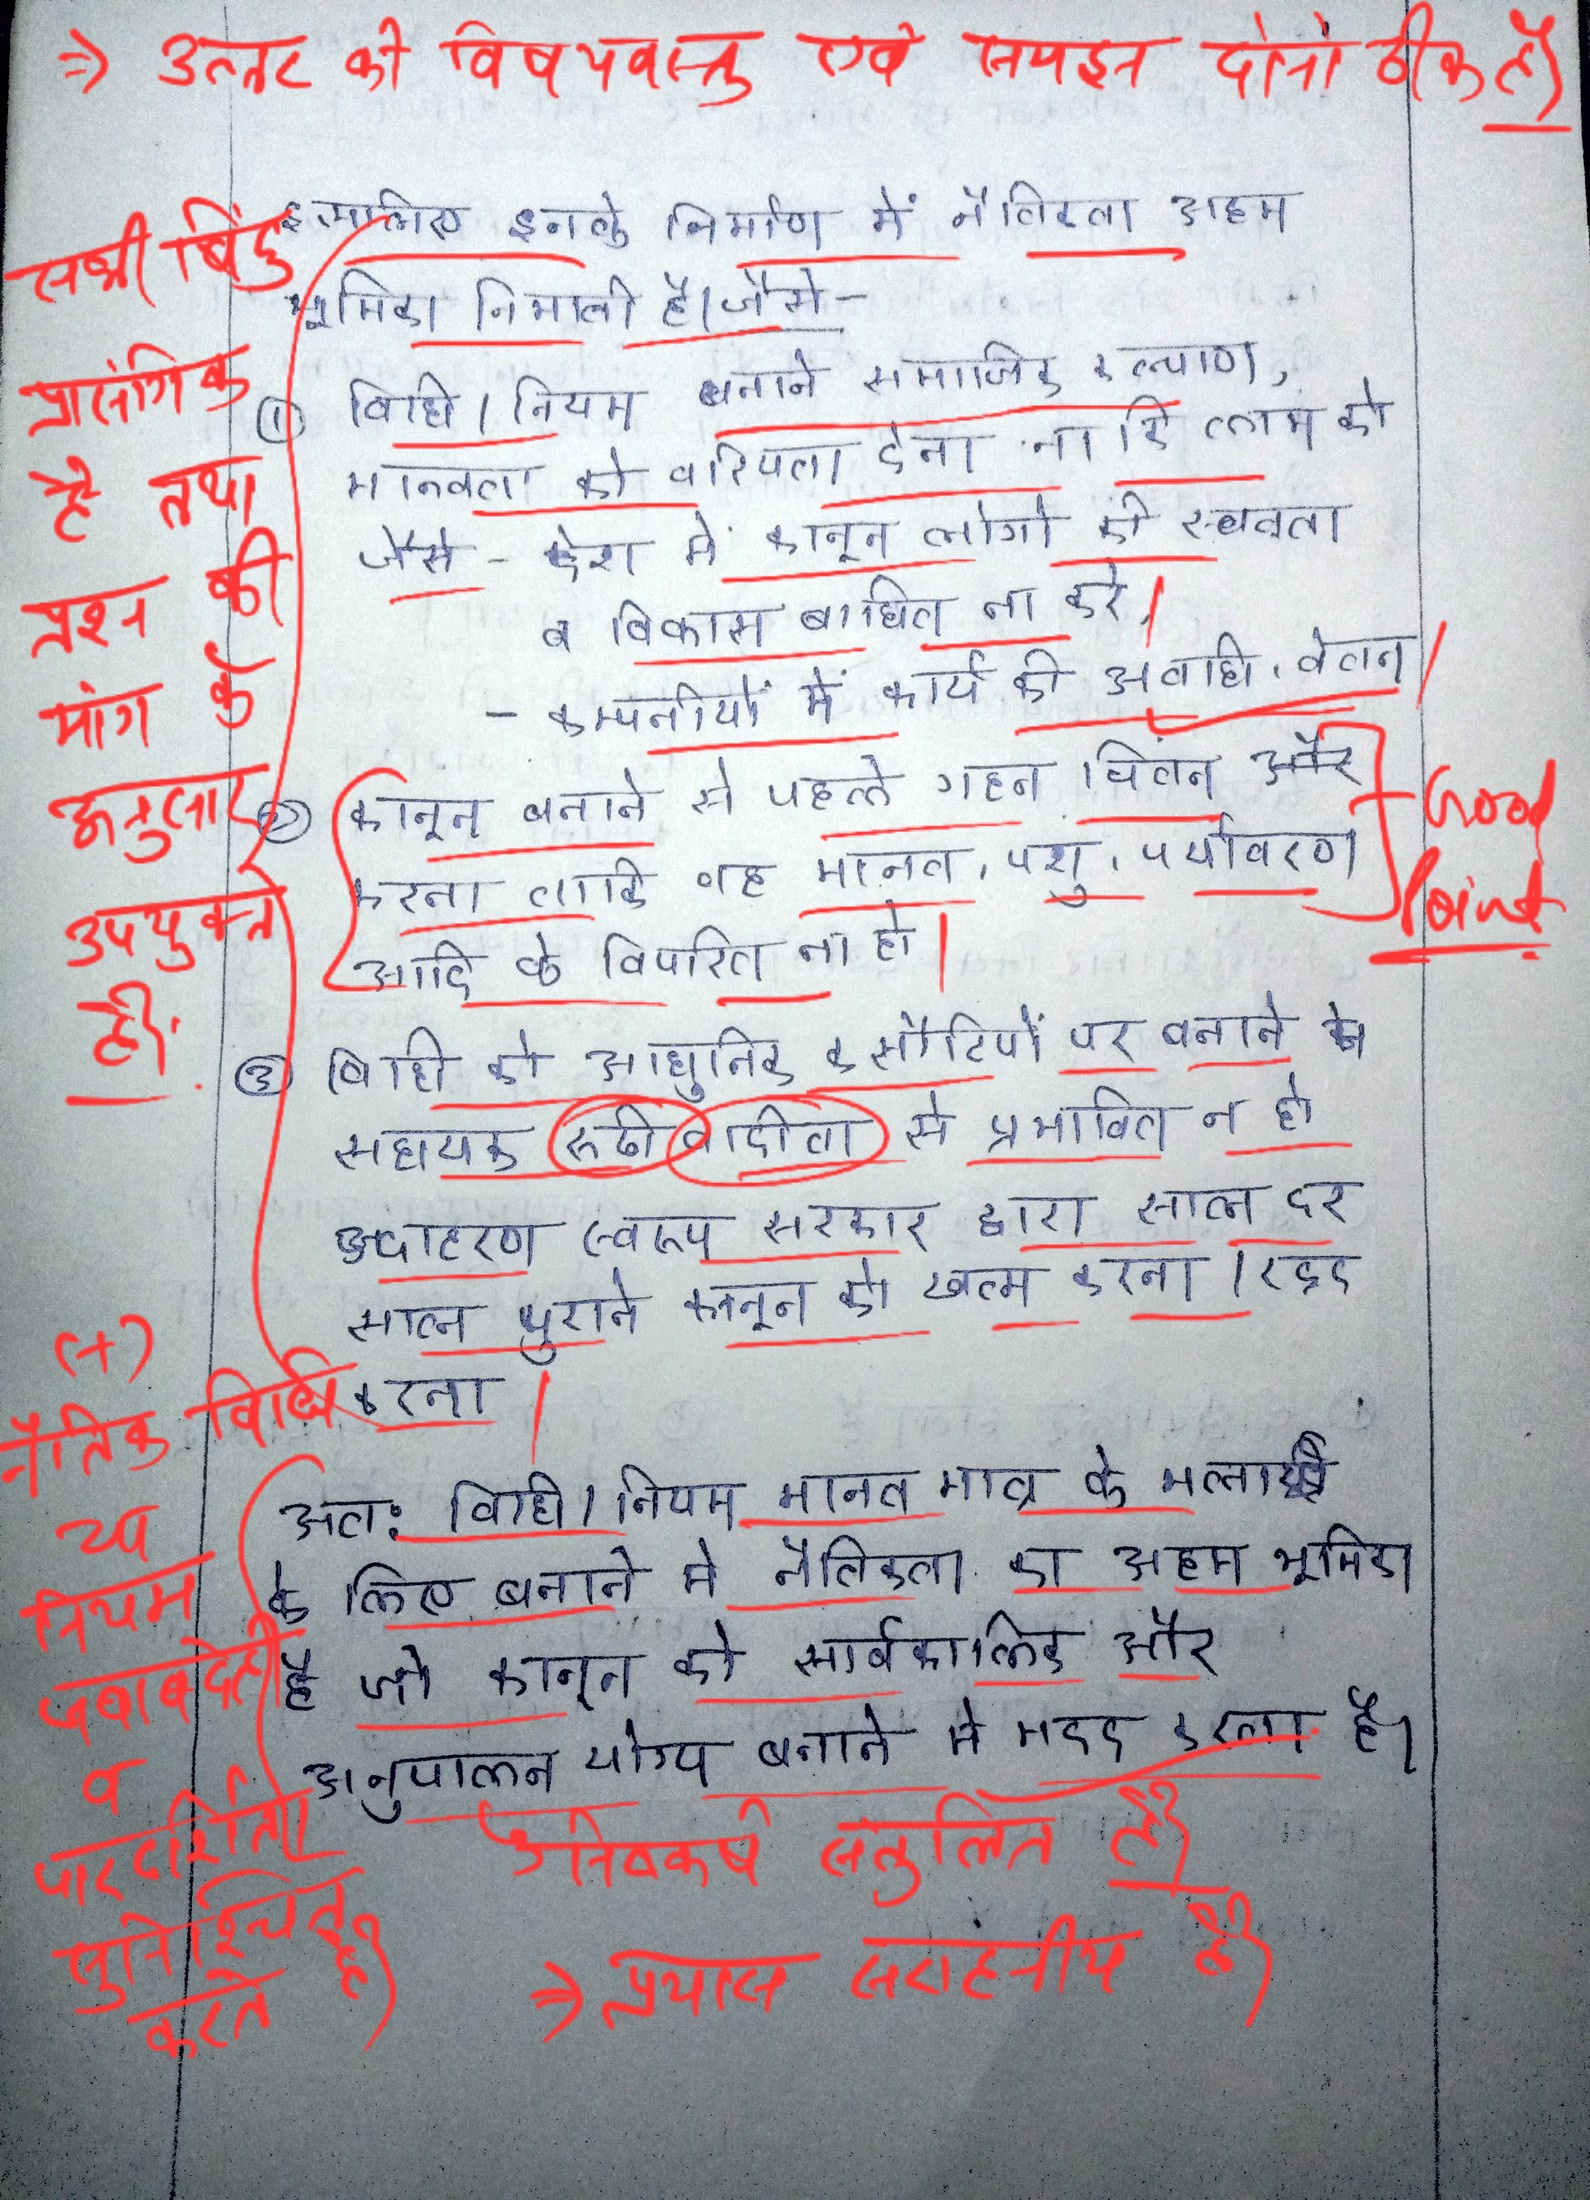 ⇒ उत्तर की विषयवस्तु एवं समझ दोनों ठीक है।
इसलिए इनके निर्माण में नैतिकता अहम
भूमिका निभाती है। जैसे-
① विधि / नियम बनाने समाजिक कल्याण,
मानवता को वरियता देना ना कि लाभ को
जैसे - देश में कानून लोगो की स्वतंत्रता
व विकास बाधित ना करे।
- कम्पनीयों में कार्य की अवधि, वेतन
② कानून बनाने से पहले गहन चिंतन और
करना ताकि वह मानव, पशु, पर्यावरण
आदि के विपरित ना हो।
Good
Point
③ विधि को आधुनिक कसौटियों पर बनाने में
सहायक रूढीवादीता से प्रभावित न हो
उदाहरण स्वरूप सरकार द्वारा साल दर
साल पुराने कानून को खत्म करना / रद्द
करना।
अतः विधि / नियम मानव मात्र के भलाई
के लिए बनाने मे नैतिकता का अहम भूमिका
है जो कानून को सार्वकालिक और
अनुपालन योग्य बनाने मे मदद करता है।
सभी बिंदु
प्रासंगिक
है तथा
प्रश्न की
मांग के
अनुसार
उपयुक्त
है।
(+)
नैतिक विधि
या
नियम
जवाबदेही
व
पारदर्शिता
सुनिश्चित
करते है।
निष्कर्ष संतुलित है।
⇒ प्रयास सराहनीय है।